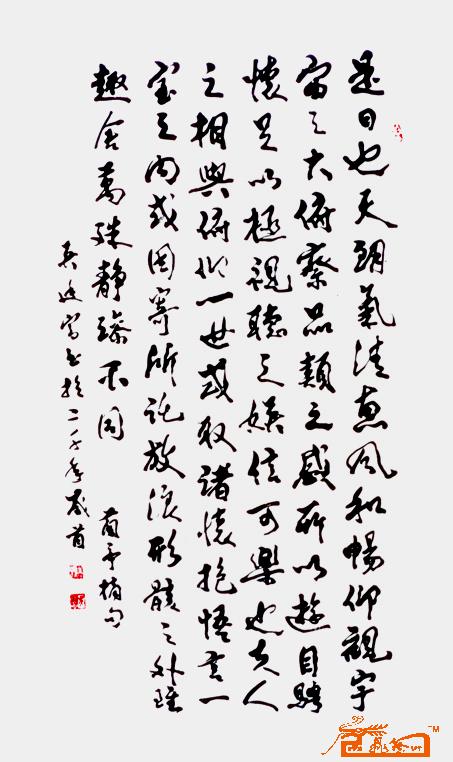 是日也天朗氣清惠風和暢仰觀宇
宙之大俯察品類之盛所以遊目騁
懷足以極視聽之娛信可樂也夫人
之相與俯仰一世或取諸懷抱悟言一
室之內或因寄所託放浪形骸之外雖
趣舍萬殊靜躁不同 蘭亭摘句
書於二年歲首
TM